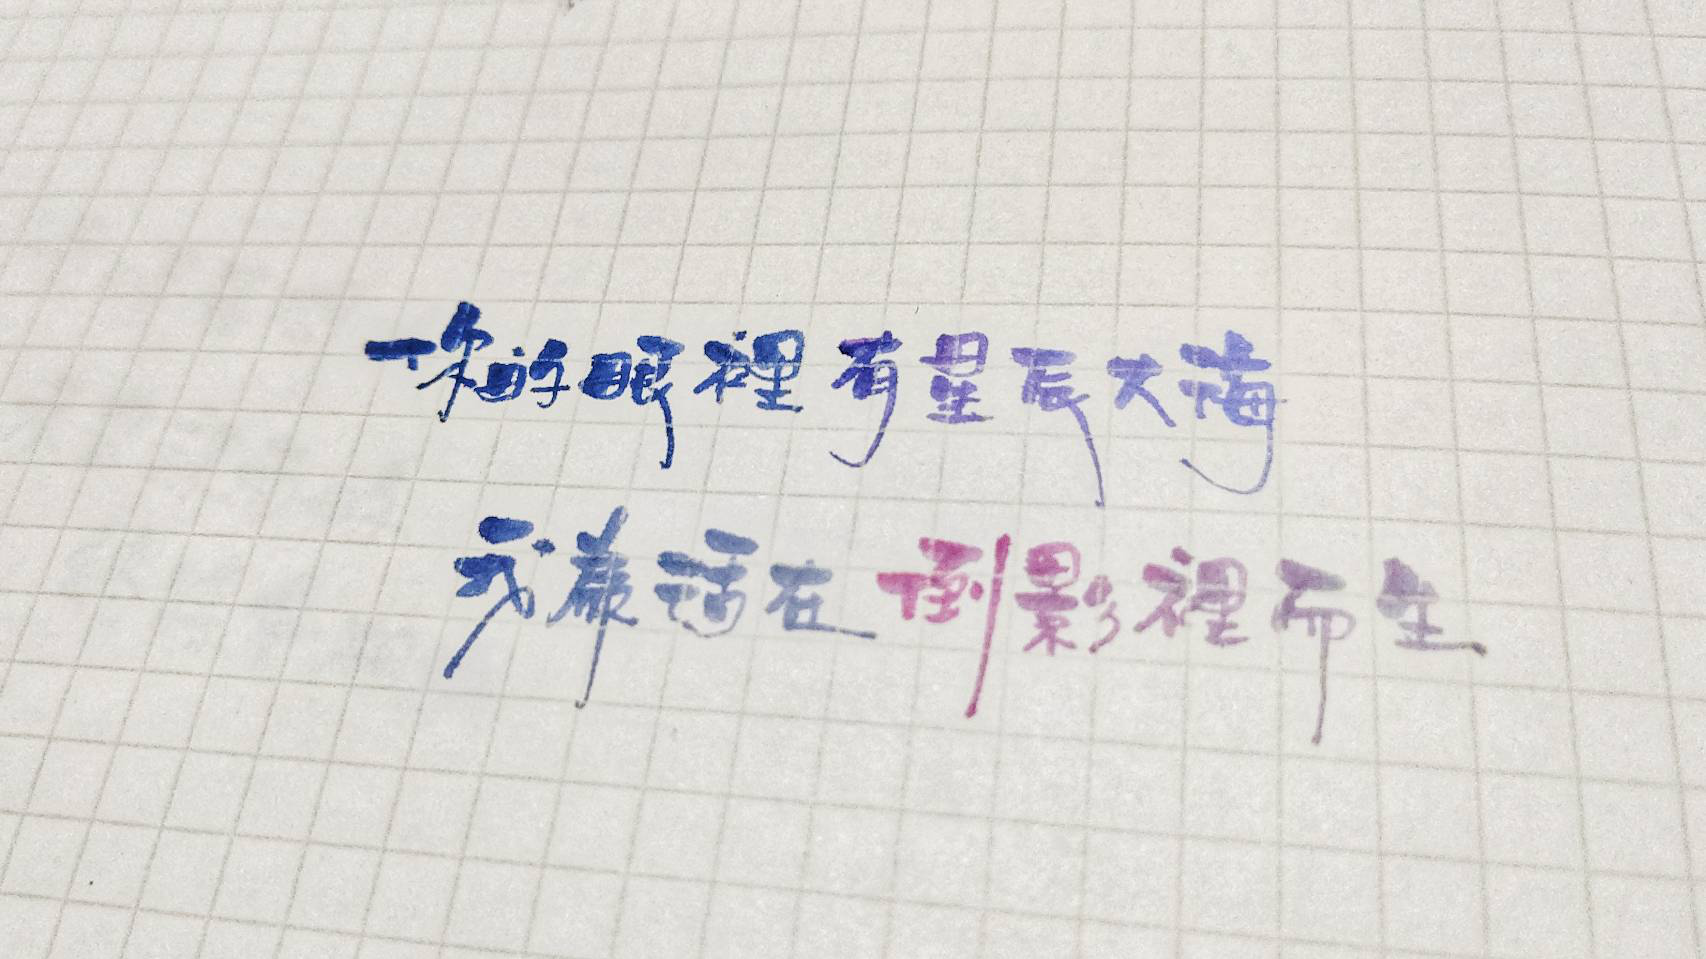 你的眼裡有星辰大海
我嚴活在倒影裡而生